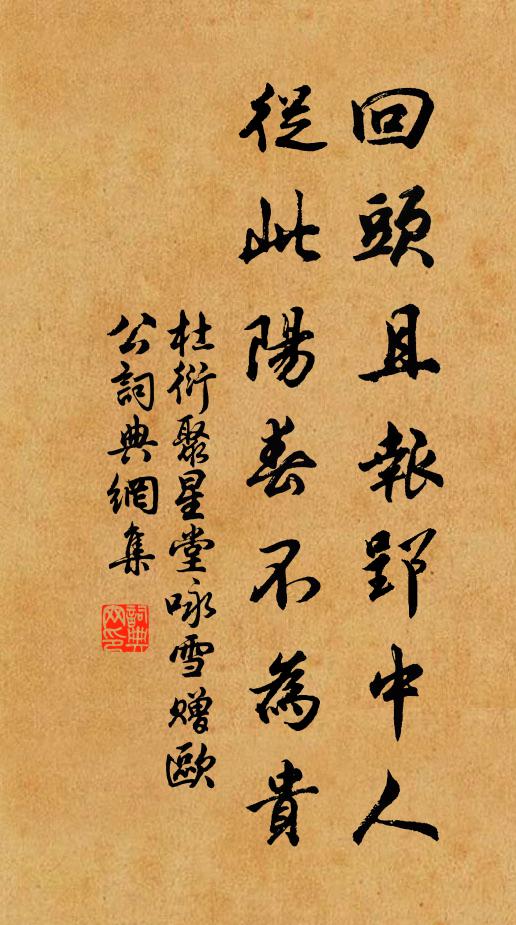 回頭且報郢中人
從此陽春不為貴
杜衍聚星堂咏雪赠歐
公詞典網集
詞典網印